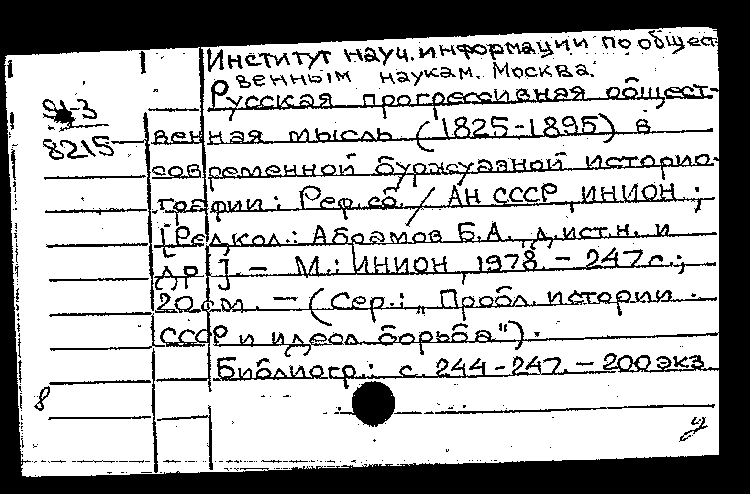 Институт науч. информации по общест-
венным наукам. Москва.
Русская прогрессивная общест-
8215
венная мысль (1825-1895) в
современной буржуазной историо-
графии: Реф. сб. / АН СССР, ИНИОН;
[Редкол.: Абрамов Б.А., д.ист.н. и
др.]. - М.: ИНИОН, 1978. - 247 с.;
20 см. - (Сер.: „Пробл. истории
СССР и идеол. борьба").
Библиогр.: с. 244-247. - 200 экз.
8